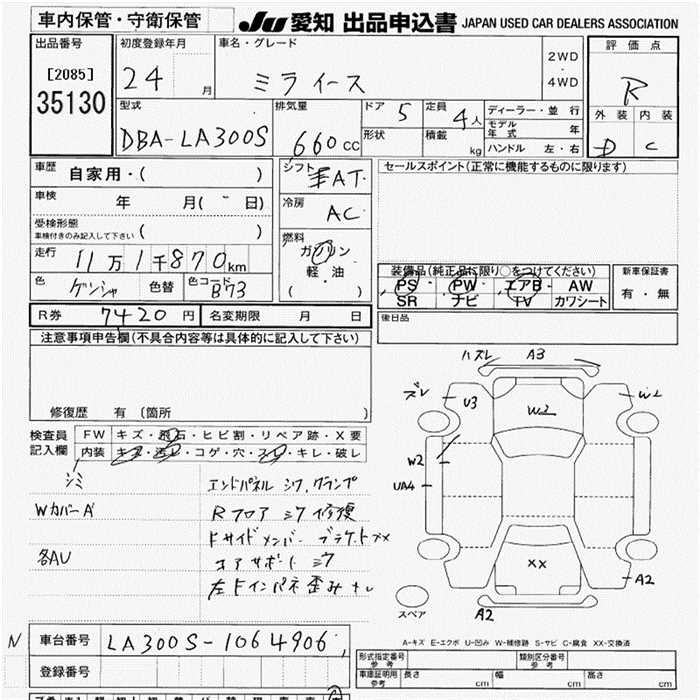 車内保管・守衛保管
JU 愛知 出品申込書 JAPAN USED CAR DEALERS ASSOCIATION
出品番号
[2085]
35130
初度登録年月
24 月
車名・グレード
ミライース
2WD
・
4WD
評価点
R
外装 内装
D C
型式
DBA-LA300S
排気量
660cc
ドア 5
形状
定員 4人
積載 kg
ディーラー・並行
モデル年式 年
ハンドル 左・右
車歴 自家用・( )
車検 年 月( ~ 日)
受検形態
車検付きのみ記入して下さい ( )
走行 11万1千870km
色 ゲンシャ 色替 色コード B73
シフト AT
冷房
AC
燃料
ガソリン
軽・油
( )
セールスポイント(正常に機能するものに限ります)
装備品(純正品に限り○をつけてください)
PS PW エアB AW
SR ナビ TV カワシート
新車保証書
有・無
R券 7420円 名変期限 月 日
後日品
注意事項申告欄(不具合内容等は具体的に記入して下さい)
修復歴 有 〔箇所 〕
検査員
記入欄
FW キズ・飛石・ヒビ割・リペア跡・X要
内装 キズ・汚レ・コゲ・穴・スレ・キレ・破レ
シミ
Wカバー A
各AU
エンドパネル シワ,クランプ
Rフロア シワ 修復
Fサイドメンバー ブラケット X
コアサポート シワ
左Fインパネ 歪み ナシ
ハズレ A3
ズレ
U3
W2
W2
W2
UA4
XX
A2
スペア
A2
A-キズ E-エクボ U-凹み W-補修跡 S-サビ C-腐食 XX-交換済
N 車台番号 LA300S-1064906
登録番号
形式指定番号 参考
類別区分番号 参考
車庫証明用 参考 長さ cm 幅 cm 高さ cm